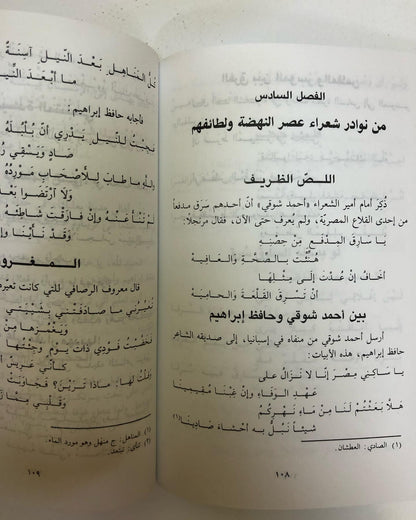 الفصل السادس
من نوادر شعراء عصر النهضة ولطائفهم
اللصّ الظريف
ذُكِرَ أمام أمير الشعراء «أحمد شوقي» أنّ أحدهم سَرَق مدفعاً
من إحدى القلاع المصريّة، ولم يُعرف حتى الآن، فقال مرتجلاً:
يَا سَارِقَ المِدْفَعِ مِنْ حِصْنِهِ
هُنِّئْتَ بِالصِّحَّةِ وَالعَافِيَهْ
أَخَافُ إِنْ عُدْتَ إِلَى مِثْلِهَا
أَنْ تَسْرِقَ القَلْعَةَ وَالحَامِيَهْ
بين أحمد شوقي وحافظ إبراهيم
أرسل أحمد شوقي من منفاه في إسبانيا، إلى صديقه الشاعر
حافظ إبراهيم، هذه الأبيات:
يَا سَاكِنِي مِصْرَ إِنَّا لا نَزَالُ عَلى
عَهْدِ الوَفَاءِ وَإِنْ غِبْنَا مُقِيمِينَا
هَلَّا بَعَثْتُمْ لَنَا مِنْ مَاءِ نَهْرِكُمُ
شَيْئاً نَبُلُّ بِهِ أَحْشَاءَ صَادِينَا(١)
(١) الصادي: العطشان.
١٠٨
المَنَاهِلِ بَعْدَ النّيلِ آسِنَةٌ
ما أَبْعَدَ
فأجابه حافظ إبراهيم:
عَجِبْتُ لِلنّيلِ يَدْرِي أَنَّ بُلْبُلَهُ
صَادٍ وَيَسْقِي
وَاللَّهِ مَا طَابَ لِلأَصْحَابِ مَوْرِدُهُ
وَلا ارْتَضَوْا بَعْدَ
لَمْ تَنْأَ عَنْهُ وَإِنْ فَارَقْتَ شَاطِئَهُ
وَقَدْ نَأَيْنَا
قال معروف الرصافي للتي كانت
تُعَيِّرُنِي
فَقُلْتُ لَهَا:
(١) المناهل: ج منهل وهو مورد الماء.
(٢) تنأى: تبتعد.
١٠٩